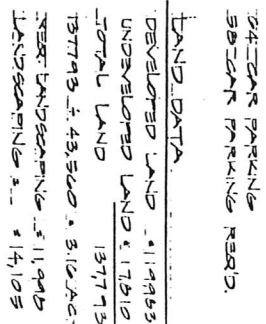 64-CAR PARKING
38-CAR PARKING REQ'D.
LAND DATA
DEVELOPED LAND = 119983
UNDEVELOPED LAND = 17,810
TOTAL LAND 137,793
137793 ÷ 43,560 = 3.16 AC.
REQ. LANDSCAPING = 11,998
LANDSCAPING = 14,105